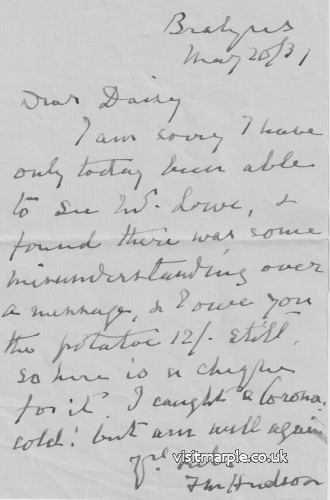 Brabyns
May 20/31
Dear Daisy
I am sorry I have
only today been able
to see Mr. Lowe, &
found there was some
misunderstanding over
a message, & I owe you
the potatoe 12/- still,
so here is a cheque
for it. I caught a Corona
cold! but am well again
Yrs.
F M Hudson
visitmarple.co.uk